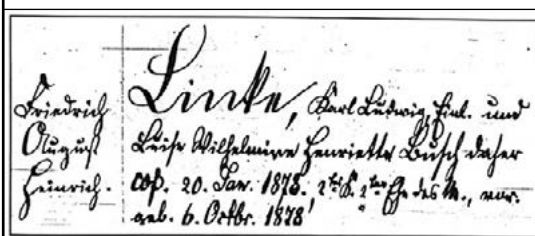 Friedrich
August
Heinrich.
Linke, Karl Ludwig, Einl. und
Luise Wilhelmine Henriette Busch daher
cop. 20. Jan. 2tes K. 2ter Ehe des M.,
geb. 6. Octbr. 1878